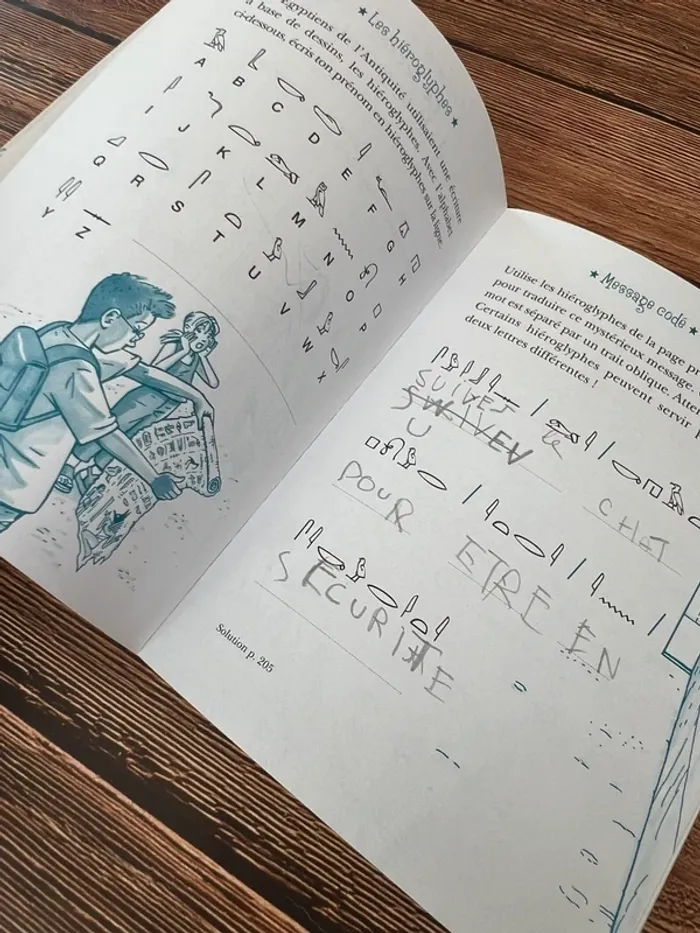 ★ Les hiéroglyphes ★
égyptiens de l'Antiquité utilisaient une écriture
à base de dessins, les hiéroglyphes. Avec l'alphabet
ci-dessous, écris ton prénom en hiéroglyphes sur la ligne.
A B C D E F G H
I J K L M N O P
Q R S T U V W X
Y Z
★ Message codé ★
Utilise les hiéroglyphes de la page
pour traduire ce mystérieux message.
mot est séparé par un trait oblique.
Certains hiéroglyphes peuvent servir
deux lettres différentes !
/ /
SUIVEZ LE CHAT
SWIVEV
U
/ / /
POUR ETRE EN
SECURITE
Solution p. 205